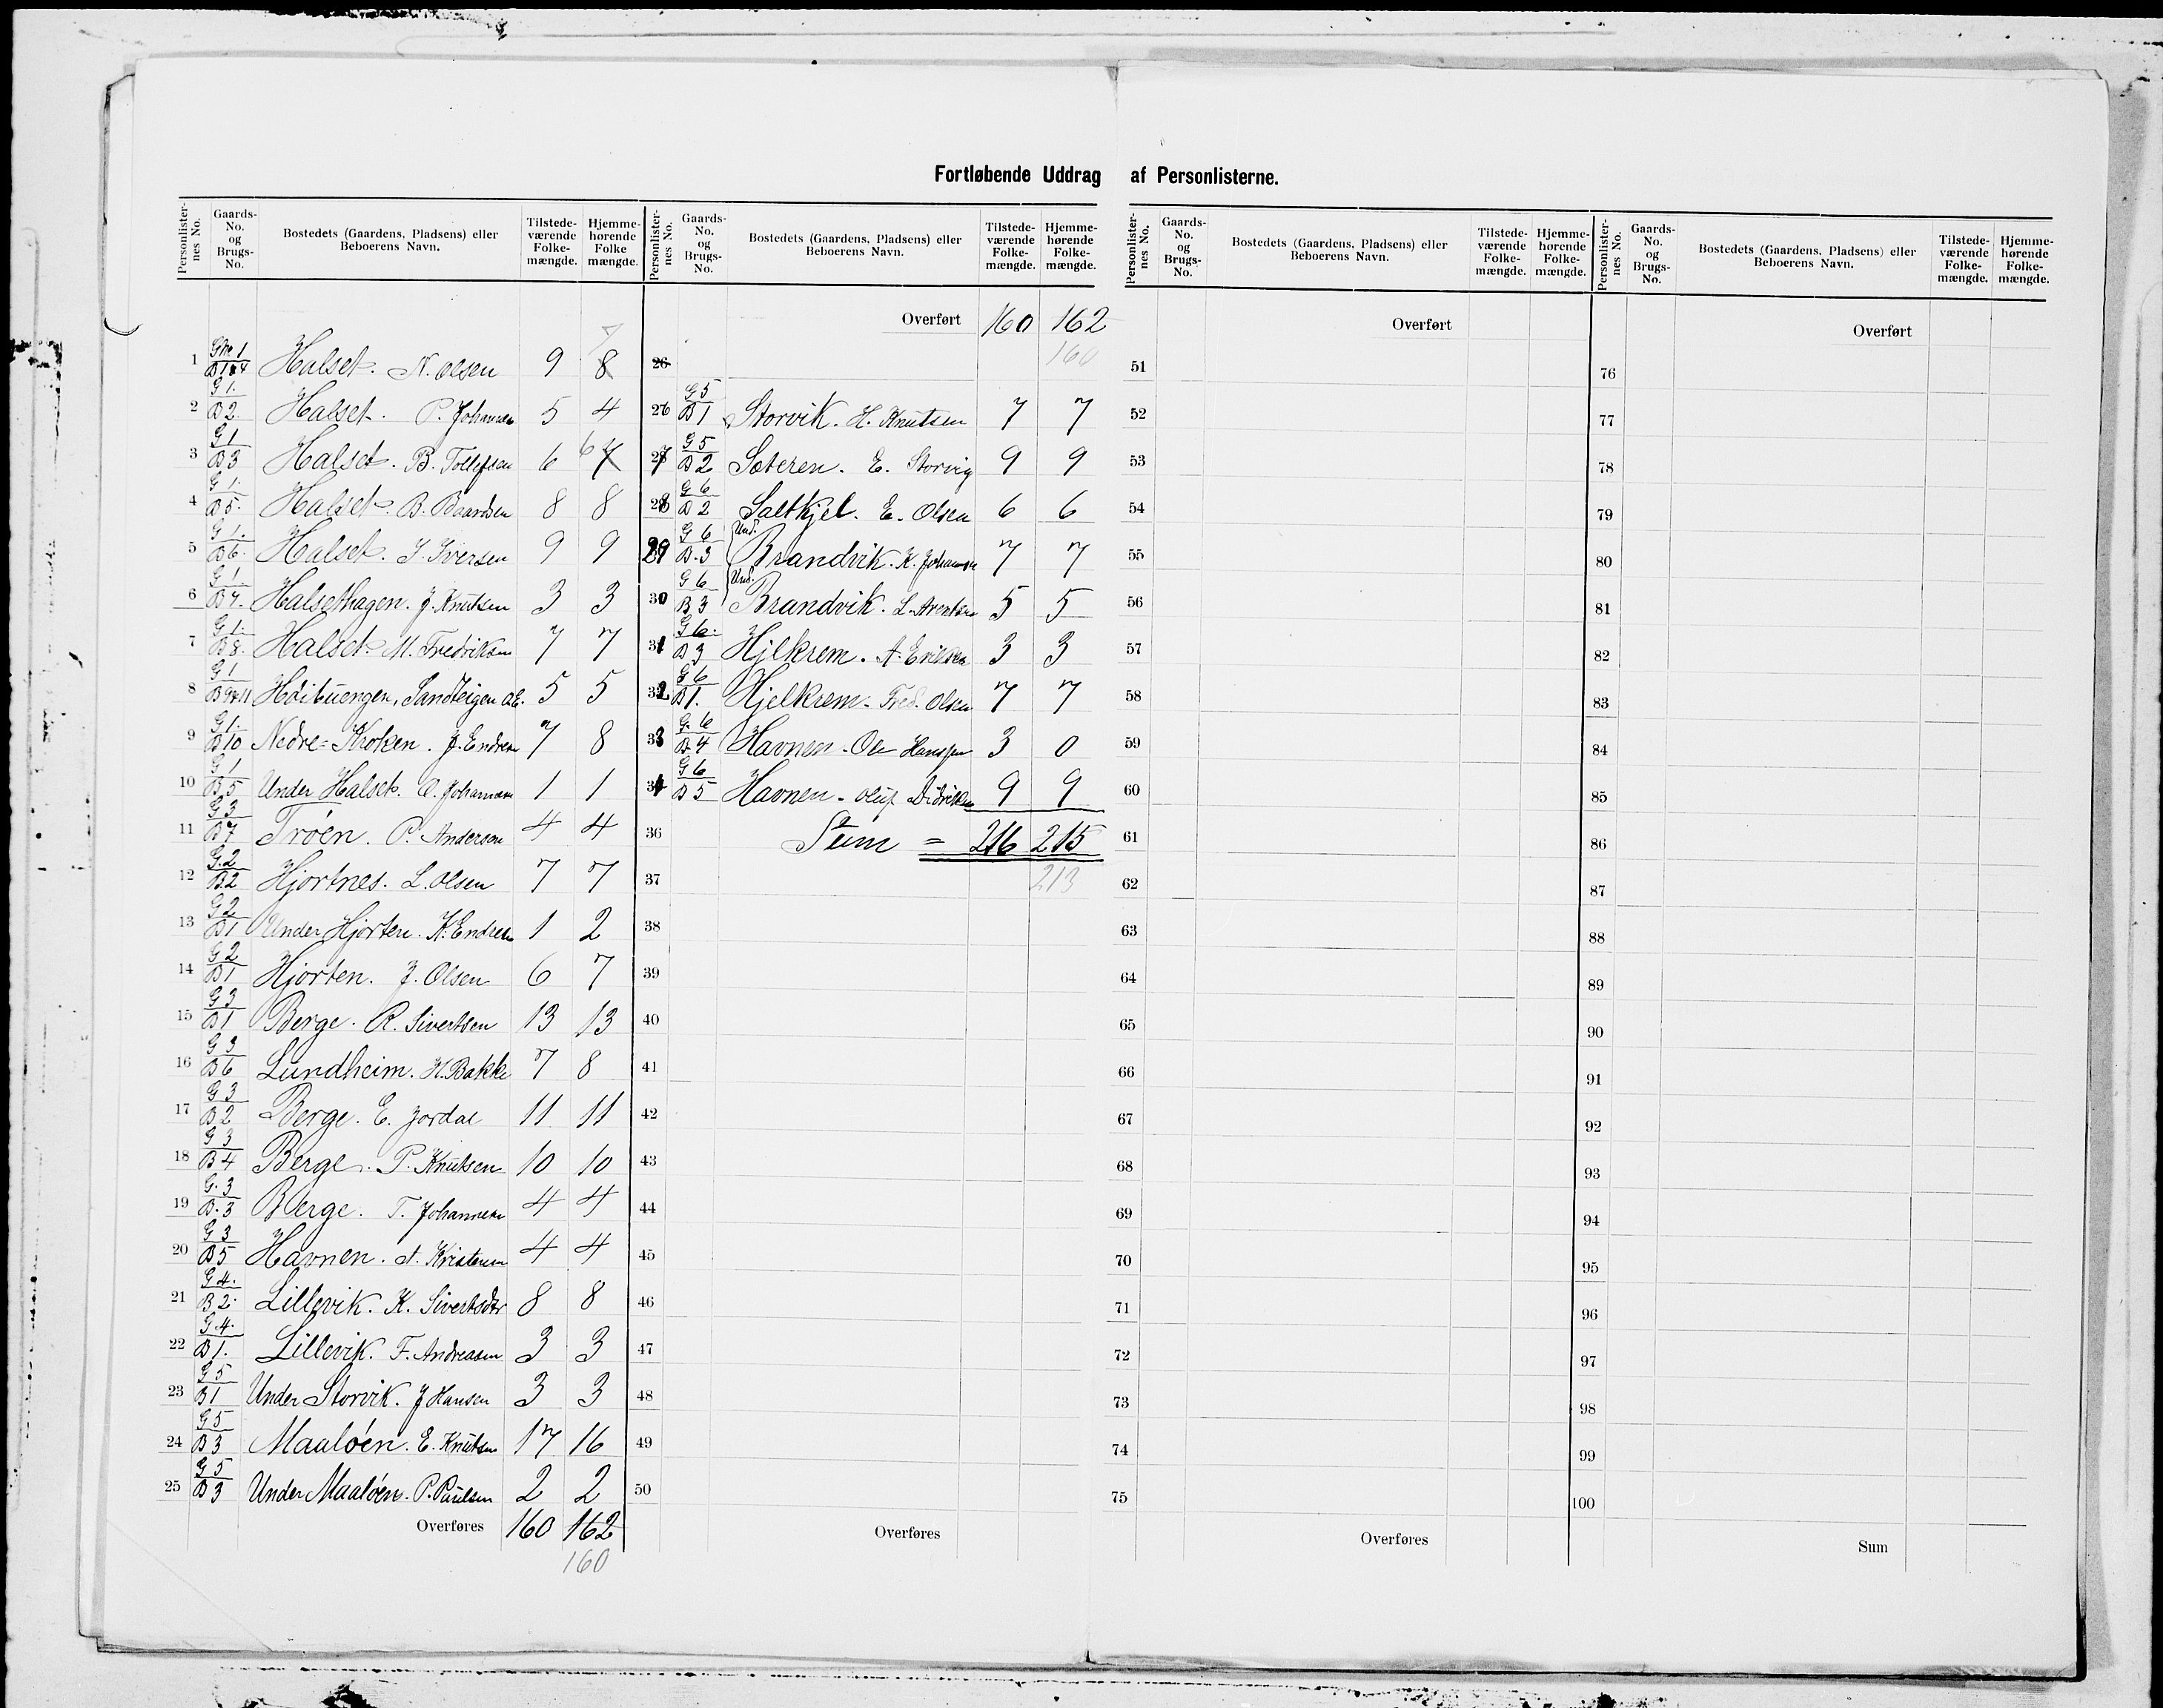 Fortløbende Uddrag af Personlisterne.
Personlister-nes No. Gaards-No. og Brugs-No. Bostedets (Gaardens, Pladsens) eller Beboerens Navn. Tilstede-værende Folke-mængde. Hjemme-hørende Folke mængde.
1 GNo 1 B 1&4 Halset. N. Olsen 9 8 7
2 G 1. B 2. Halset. P. Johannes 5 4
3 G 1 B 3 Halset. B. Tollefsen 6 7 6
4 G 1. B 5. Halset. B. Baardsen 8 8
5 G 1. B 6. Halset. I. Iversen 9 9
6 G 1. B 7. Halsethagen. J. Knutsen 3 3
7 G 1. B 8. Halset. M. Fredriksen 7 7
8 G 1 B 9&11 Höibuengen, Sandteigen O.E. 5 5
9 G 1. B 10 Nedre=Kroken. J. Endresen 7 8
10 G 1 B 5 Under Halset. O. Johannesen 1 1
11 G 3 B 7 Tröen. P. Andersen 4 4
12 G. 2 B. 2 Hjortnes. L. Olsen 7 7
13 G 2 B 1 Under Hjorten. K. Endresen 1 2
14 G 2 B 1 Hjorten. J. Olsen 6 7
15 G 3 B 1 Berge. R. Sivertsen 13 13
16 G 3 B 6 Lundheim. H. Bakke 7 8
17 G 3 B 2 Berge. E. Jordal 11 11
18 G 3 B 4 Berge. P. Knutsen 10 10
19 G. 3 B. 3 Berge. T. Johannesen 4 4
20 G 3 B 5 Havnen. A. Kristensen 4 4
21 G 4. B 2. Lillevik. K. Sivertsdtr 8 8
22 G. 4. B 1. Lillevik. F. Andreasen 3 3
23 G 5 B 1 Under Storvik. J Hansen 3 3
24 G 5 B 3 Maalöen. E. Knutsen 17 16
25 G 5 B 3 Under Maalöen. P. Paulsen 2 2
Overføres 160 162
160
Personlister-nes No. Gaards-No. og Brugs-No. Bostedets (Gaardens, Pladsens) eller Beboerens Navn. Tilstede-værende Folke-mængde. Hjemme-hørende Folke-mængde.
Overført 160 162
26 160
26 G 5 B 1 Storvik. H. Knutsen 7 7
27 G 5 B 2 Sæteren. E. Storvig 9 9
28 G 6 B 2 Saltkjel. E. Olsen 6 6
29 G 6 B. 3 Und. Brandvik. K. Johannsen 7 7
30 G 6 B 3 Und. Brandvik. L. Arentsen 5 5
31 G 6. B 3 Hjelkrem. A. Eriksen 3 3
32 G 6 B 1. Hjelkrem. Fred. Olsen 7 7
33 G. 6 B. 4 Havnen. Ole Hanssen 3 0
34 G 6 B 5 Havnen. Oluf Didriksen 9 9
36 Sum = 216 215
37 213
38
39
40
41
42
43
44
45
46
47
48
49
50
Overføres
Personlister-nes No. Gaards-No. og Brugs-No. Bostedets (Gaardens, Pladsens) eller Beboerens Navn. Tilstede-værende Folke-mængde. Hjemme-hørende Folke-mængde.
Overført
51
52
53
54
55
56
57
58
59
60
61
62
63
64
65
66
67
68
69
70
71
72
73
74
75
Overføres
Personlister-nes No. Gaards-No. og Brugs-No. Bostedets (Gaardens, Pladsens) eller Beboerens Navn. Tilstede-værende Folke-mængde. Hjemme-hørende Folke-mængde.
Overført
76
77
78
79
80
81
82
83
84
85
86
87
88
89
90
91
92
93
94
95
96
97
98
99
100
Sum